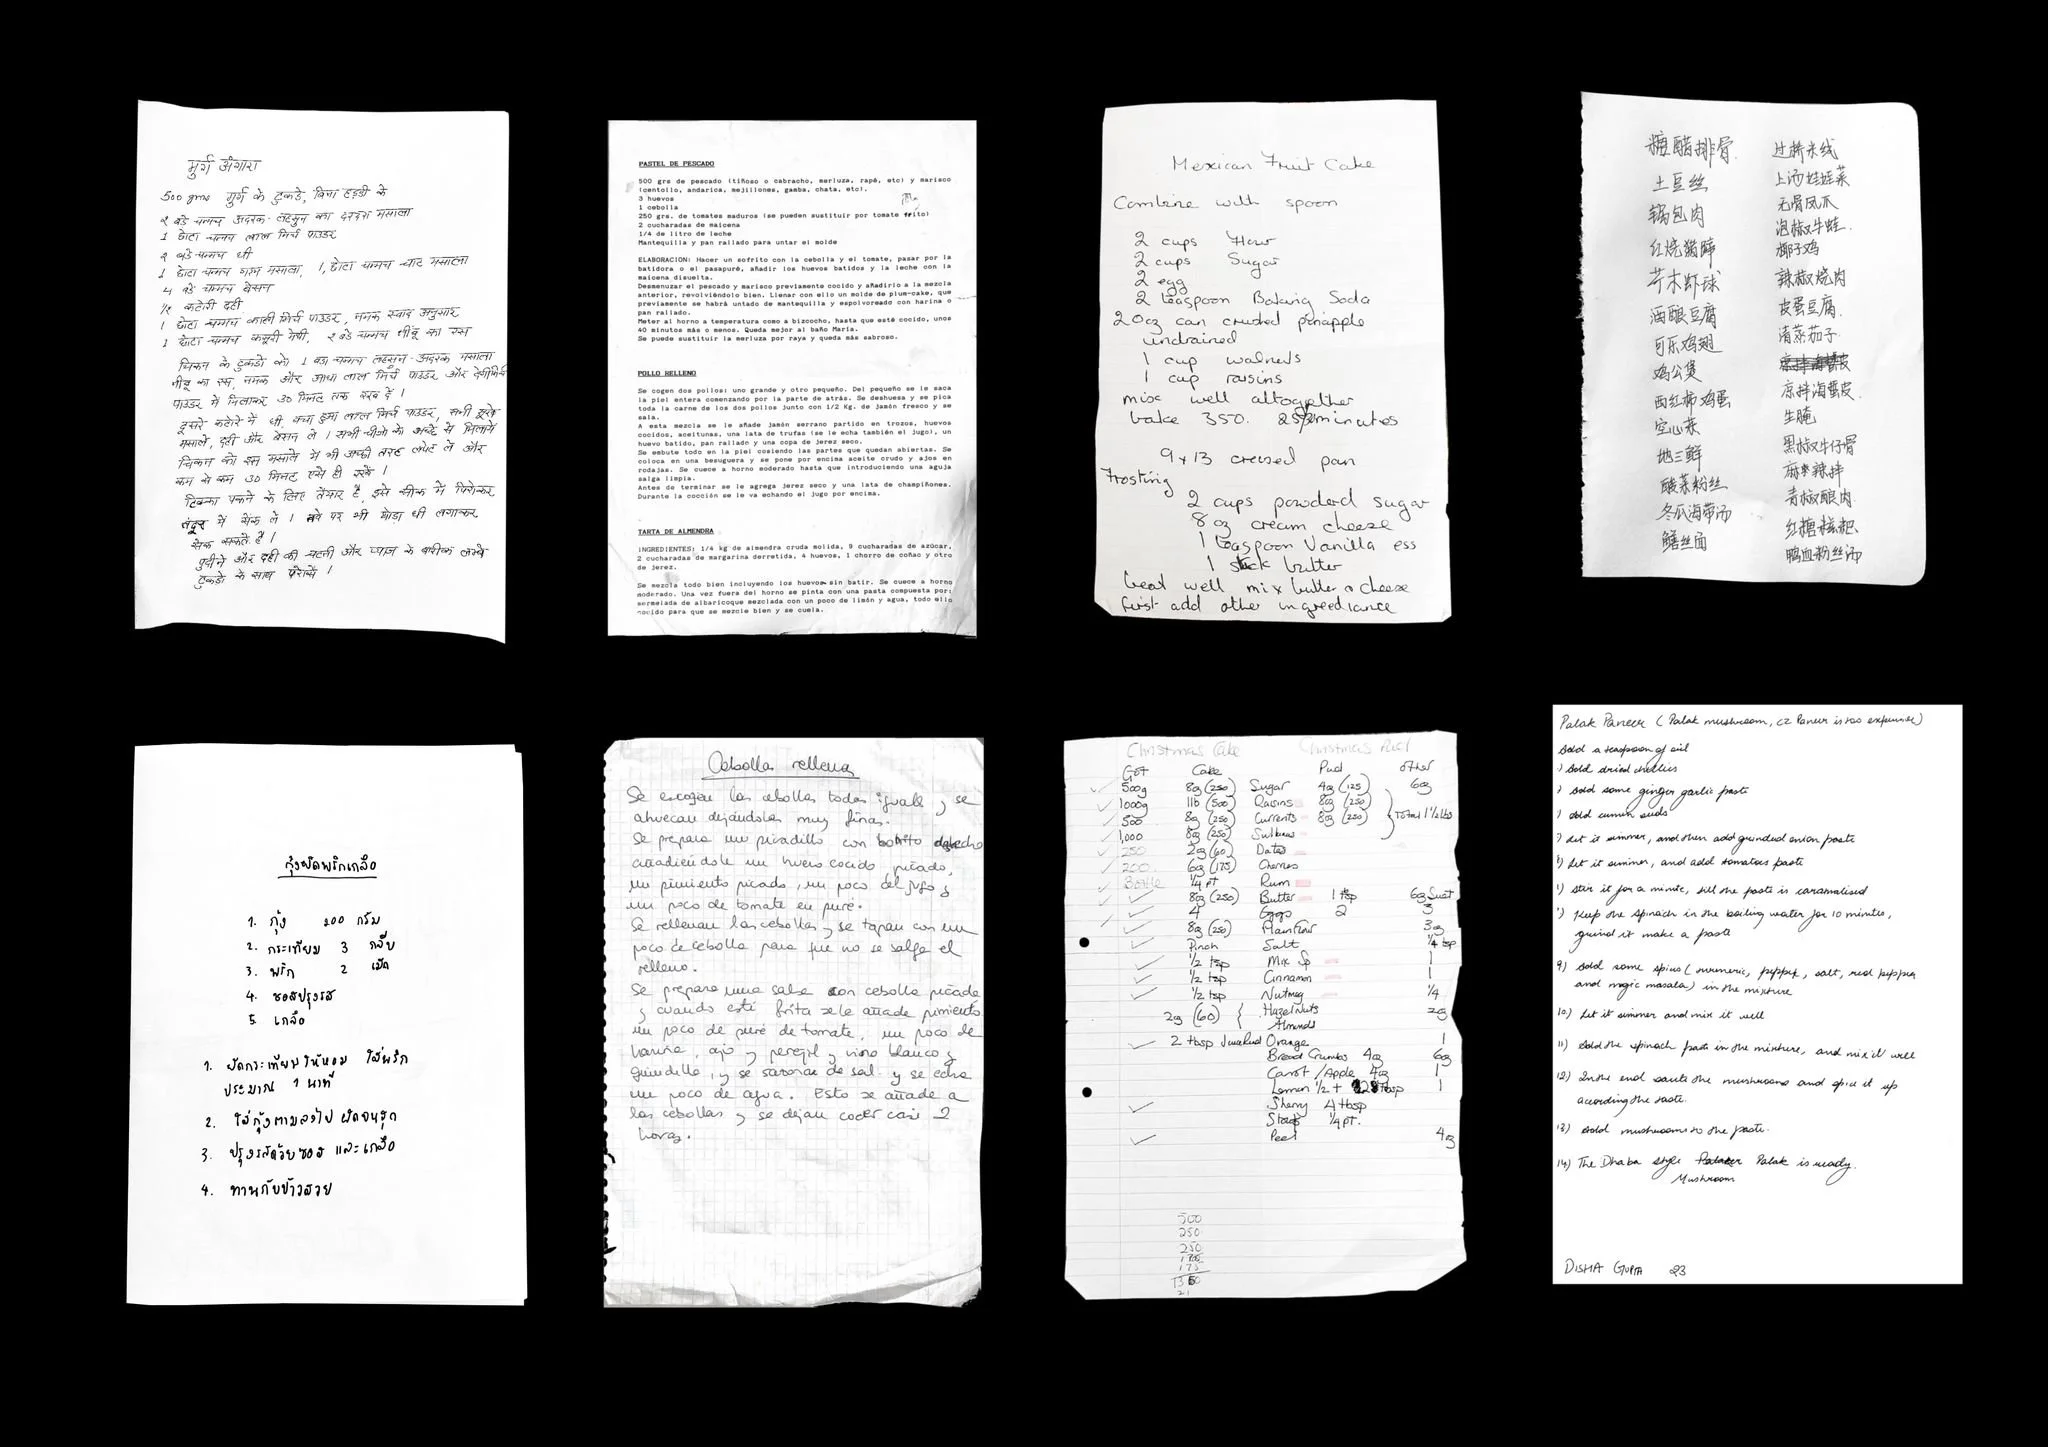 मुर्ग अंगारा
500 gms मुर्ग के टुकडे, बिना हड्डी के
२ बडे चम्मच अदरक-लहसुन का दरदरा मसाला
1 छोटा चम्मच लाल मिर्च पाउडर
२ बडे चम्मच घी
1 छोटा चम्मच गरम मसाला, 1 छोटा चम्मच चाट मसाला
4 बडे चम्मच बेसन
1/2 कटोरी दही
1 छोटा चम्मच काली मिर्च पाउडर, नमक स्वाद अनुसार
1 छोटा चम्मच कसूरी मेथी, २ बडे चम्मच नींबू का रस
चिकन के टुकडो को 1 बडा चम्मच लहसुन-अदरक मसाला
नींबू का रस, नमक और आधा लाल मिर्च पाउडर और
पाउडर में मिलाकर 30 मिनट तक रख दें।
दूसरे कटोरे में घी, बचा हुआ लाल मिर्च पाउडर, सभी सूखे
मसाले, दही और बेसन ले। सभी चीजो को अच्छे से मिलाये
चिकन को इस मसाले में भी अच्छी तरह लपेट ले और
कम से कम 30 मिनट ऐसे ही रखें।
टिक्का पकने के लिए तैयार है, इसे सीक में पिरोकर
तंदूर में सेंक ले। तवे पर भी थोडा घी लगाकर
सेक सकते है।
पुदीने और दही की चटनी और प्याज के बारीक लम्बे
टुकडो के साथ परोसें।
PASTEL DE PESCADO
500 grs de pescado (tiñoso o cabracho, merluza, rapé, etc) y marisco
(centollo, andarica, mejillones, gamba, chata, etc).
3 huevos
1 cebolla
250 grs. de tomates maduros (se pueden sustituir por tomate frito)
2 cucharadas de maicena
1/4 de litro de leche
Mantequilla y pan rallado para untar el molde
ELABORACION: Hacer un sofrito con la cebolla y el tomate, pasar por la
batidora o el pasapuré, añadir los huevos batidos y la leche con la
maicena disuelta.
Desmenuzar el pescado y marisco previamente cocido y añadirlo a la mezcla
anterior, revolviéndolo bien. Llenar con ello un molde de plum-cake, que
previamente se habrá untado de mantequilla y espolvoreado con harina o
pan rallado.
Meter al horno a temperatura como a bizcocho, hasta que esté cocido, unos
40 minutos más o menos. Queda mejor al baño María.
Se puede sustituir la merluza por raya y queda más sabroso.
POLLO RELLENO
Se cogen dos pollos: uno grande y otro pequeño. Del pequeño se le saca
la piel entera comenzando por la parte de atrás. Se deshuesa y se pica
toda la carne de los dos pollos junto con 1/2 Kg. de jamón fresco y se
sala.
A esta mezcla se le añade jamón serrano partido en trozos, huevos
cocidos, aceitunas, una lata de trufas (se le echa también el jugo), un
huevo batido, pan rallado y una copa de jerez seco.
Se embute todo en la piel cosiendo las partes que quedan abiertas. Se
coloca en una besuguera y se pone por encima aceite crudo y ajos en
rodajas. Se cuece a horno moderado hasta que introduciendo una aguja
salga limpia.
Antes de terminar se le agrega jerez seco y una lata de champiñones.
Durante la cocción se le va echando el jugo por encima.
TARTA DE ALMENDRA
INGREDIENTES: 1/4 kg de almendra cruda molida, 9 cucharadas de azúcar,
2 cucharadas de margarina derretida, 4 huevos, 1 chorro de coñac y otro
de jerez.
Se mezcla todo bien incluyendo los huevos sin batir. Se cuece a horno
moderado. Una vez fuera del horno se pinta con una pasta compuesta por:
mermelada de albaricoque mezclada con un poco de limón y agua, todo ello
cocido para que se mezcle bien y se cuela.
Mexican Fruit Cake
Combine with spoon
2 cups flour
2 cups Sugar
2 egg
2 teaspoon Baking Soda
20oz can crushed pinapple
undrained
1 cup walnuts
1 cup raisins
mix well altogther
bake 350. minutes
9x13 creased pan
Frosting
2 cups powderd sugar
8 oz cream cheese
1 teaspoon Vanilla ess
1 stick butter
beat well mix butter & cheese
first add other ingreediance
糖醋排骨
土豆丝
锅包肉
红烧猪蹄
芥末虾球
酒酿豆腐
可乐鸡翅
鸡公煲
西红柿鸡蛋
空心菜
地三鲜
酸菜粉丝
冬瓜海带汤
鳝丝面
过桥米线
上汤娃娃菜
无骨凤爪
泡椒牛蛙
椰子鸡
辣椒烧肉
皮蛋豆腐
清蒸茄子
凉拌海蜇皮
生腌
黑椒牛仔骨
麻辣拌
青椒酿肉
红糖糍粑
鸭血粉丝汤
กุ้งผัดพริกเกลือ
1. กุ้ง 200 กรัม
2. กระเทียม 3 กลีบ
3. พริก 2 เม็ด
4. ซอสปรุงรส
5. เกลือ
1. ผัดกระเทียมให้หอม ใส่พริก
ประมาณ 1 นาที
2. ใส่กุ้งตามลงไป ผัดจนสุก
3. ปรุงรสด้วยซอส และเกลือ
4. ทานกับข้าวสวย
Cebolla rellena
Se escogen las cebollas todas iguales y se
ahuecan dejándolas muy finas.
Se prepara un picadillo con bonito deshecho
añadiéndole un huevo cocido picado,
un pimiento picado, un poco del jugo y
un poco de tomate en puré.
Se rellenan las cebollas y se tapan con un
poco de cebolla para que no se salga el
relleno.
Se prepara una salsa con cebolla picada
y cuando esté frita se le añade pimiento
un poco de puré de tomate, un poco de
harina, ajo y perejil y vino blanco y
guindilla, y se sazona de sal y se echa
un poco de agua. Esto se añade a
las cebollas y se dejan cocer casi 2
horas.
Christmas Cake Christmas Pud
Got Cake Pud other
500g 8oz (250) Sugar 4oz (125) 6oz
1000g 1lb (500) Raisins 8oz (250)
500 8oz (250) Currents 8oz (250) Total 1 1/2 lbs
1,000 8oz (250) Sultanas
250 2oz (60) Dates
200 6oz (175) Cherries
Bottle 1/4 pt Rum
8oz (250) Butter 1 tsp 6oz Suet
4 Eggs 2 3
8oz (250) Plain flour 3oz
Pinch Salt 1/4 tsp
1/2 tsp Mix Sp 1
1/2 tsp Cinnamon 1
1/2 tsp Nutmeg 1/4
2oz (60) { Hazel Nuts 2oz
Almonds
2 tbsp Juice Rind Orange 1
Bread Crumbs 4oz 6oz
Carrot / Apple 4oz 1
Lemon 1/2 + tbsp 1
Sherry 4 tbsp
Stout 1/4 pt.
Peel 4oz
500
250
250
175
21
Palak Paneer (Palak mushroom, cz Paneer is too expensive)
Add a teaspoon of oil
) Add dried chillies
) Add some ginger garlic paste
) Add cumin seeds
) Let it simmer, and then add grinded onion paste
) Let it simmer, and add tomatoes paste
) Stir it for a minute, till the paste is caramalised
) Keep the spinach in the boiling water for 10 minutes,
grind it make a paste
9) Add some spices (turmeric, pepper, salt, red pepper
and magic masala) in the mixture
10.) Let it simmer and mix it well
11) Add the spinach paste in the mixture, and mix it well
12) In the end saute the mushrooms and spice it up
according the taste.
13) Add mushrooms to the paste.
14) The Dhaba style Palak is ready.
Mushroom
DISHA GUPTA 23